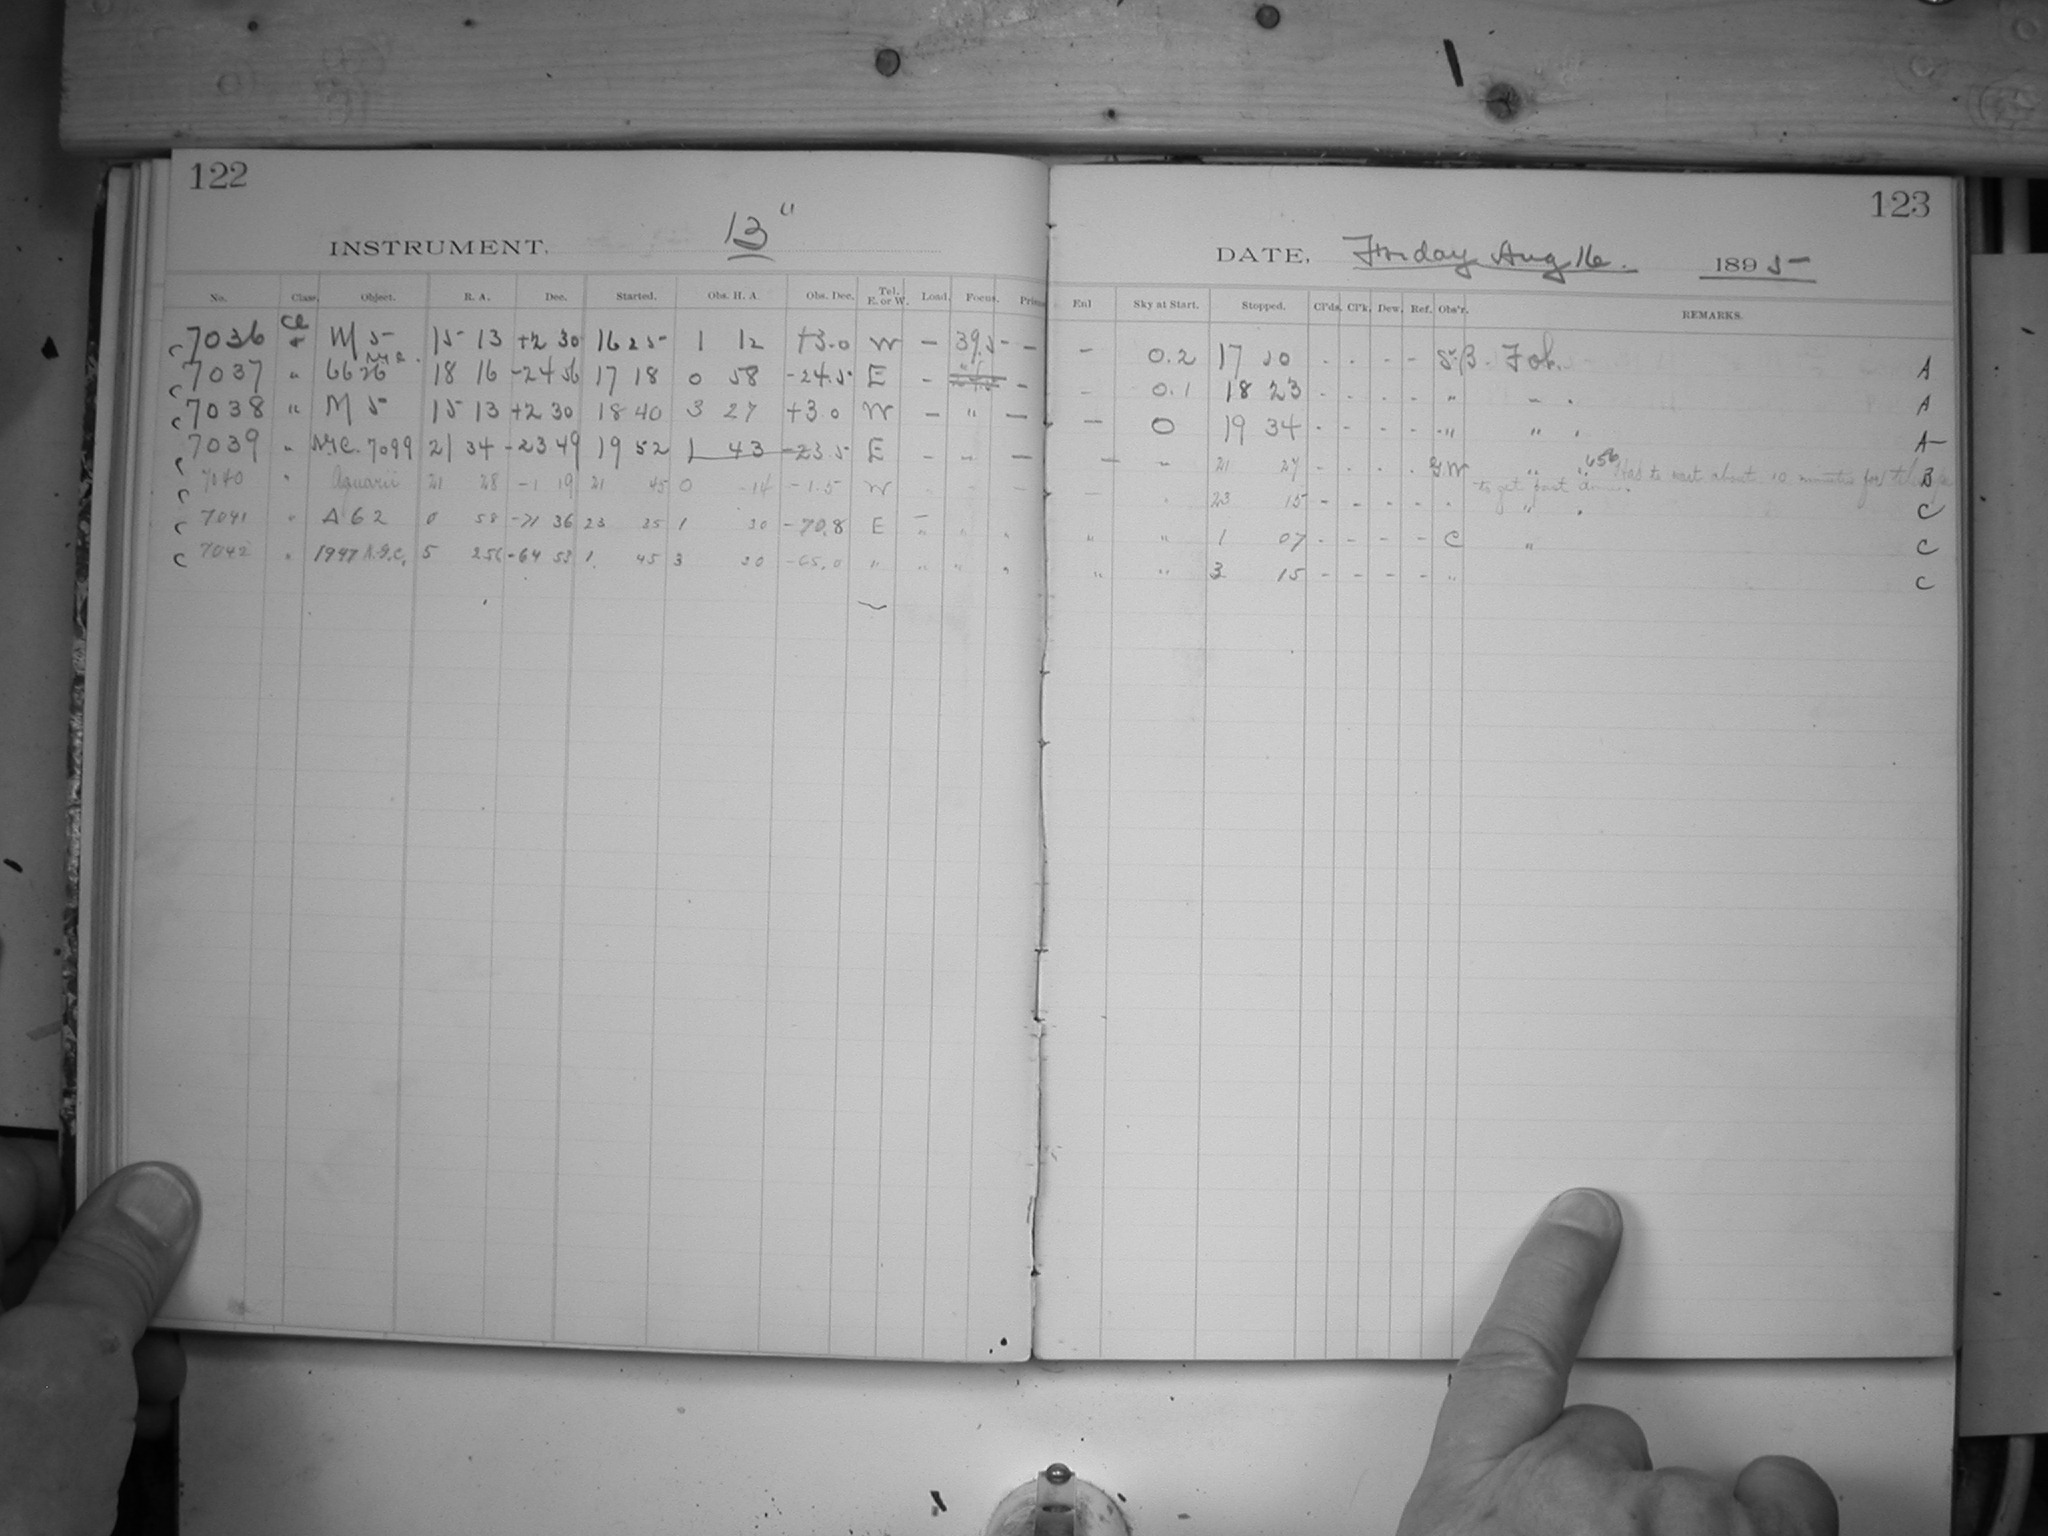 122
INSTRUMENT. 13"
No. Class. Object. R. A. Dec. Started. Obs. H. A. Obs. Dec. Tel. E. or W. Load. Focus. Prism
7036 Cl M 5 15 13 +2 30 16 25 1 12 +3.0 W - 39.5 -
7037 " 6626 N.G.C. 18 16 -24 56 17 18 0 58 -24.5 E - " -
7038 " M 5 15 13 +2 30 18 40 3 27 +3.0 W - " -
7039 " N.G.C. 7099 21 34 -23 49 19 52 1 43 -23.5 E - - -
7040 " Aquarii 21 28 -1 19 21 45 0 14 -1.5 W - - -
7041 " A 62 0 58 -71 36 23 35 1 30 -70.8 E " " "
7042 " 1947 N.G.C. 5 256 -64 53 1 45 3 20 -65.0 " " " "
123
DATE, Friday Aug 16. 1895
Enl Sky at Start. Stopped. Cl'ds. Cl'k. Dew. Ref. Obs'r. REMARKS.
- 0.2 17 10 - - - - S.B. A
- 0.1 18 23 - - - - " A
- 0 19 34 - - - - " " A
- - 21 27 - - - - W " Had to wait about 10 minutes for B
to get past
- " 23 15 - - - - " " C
" " 1 07 - - - - C " C
" " 3 15 - - - - " C